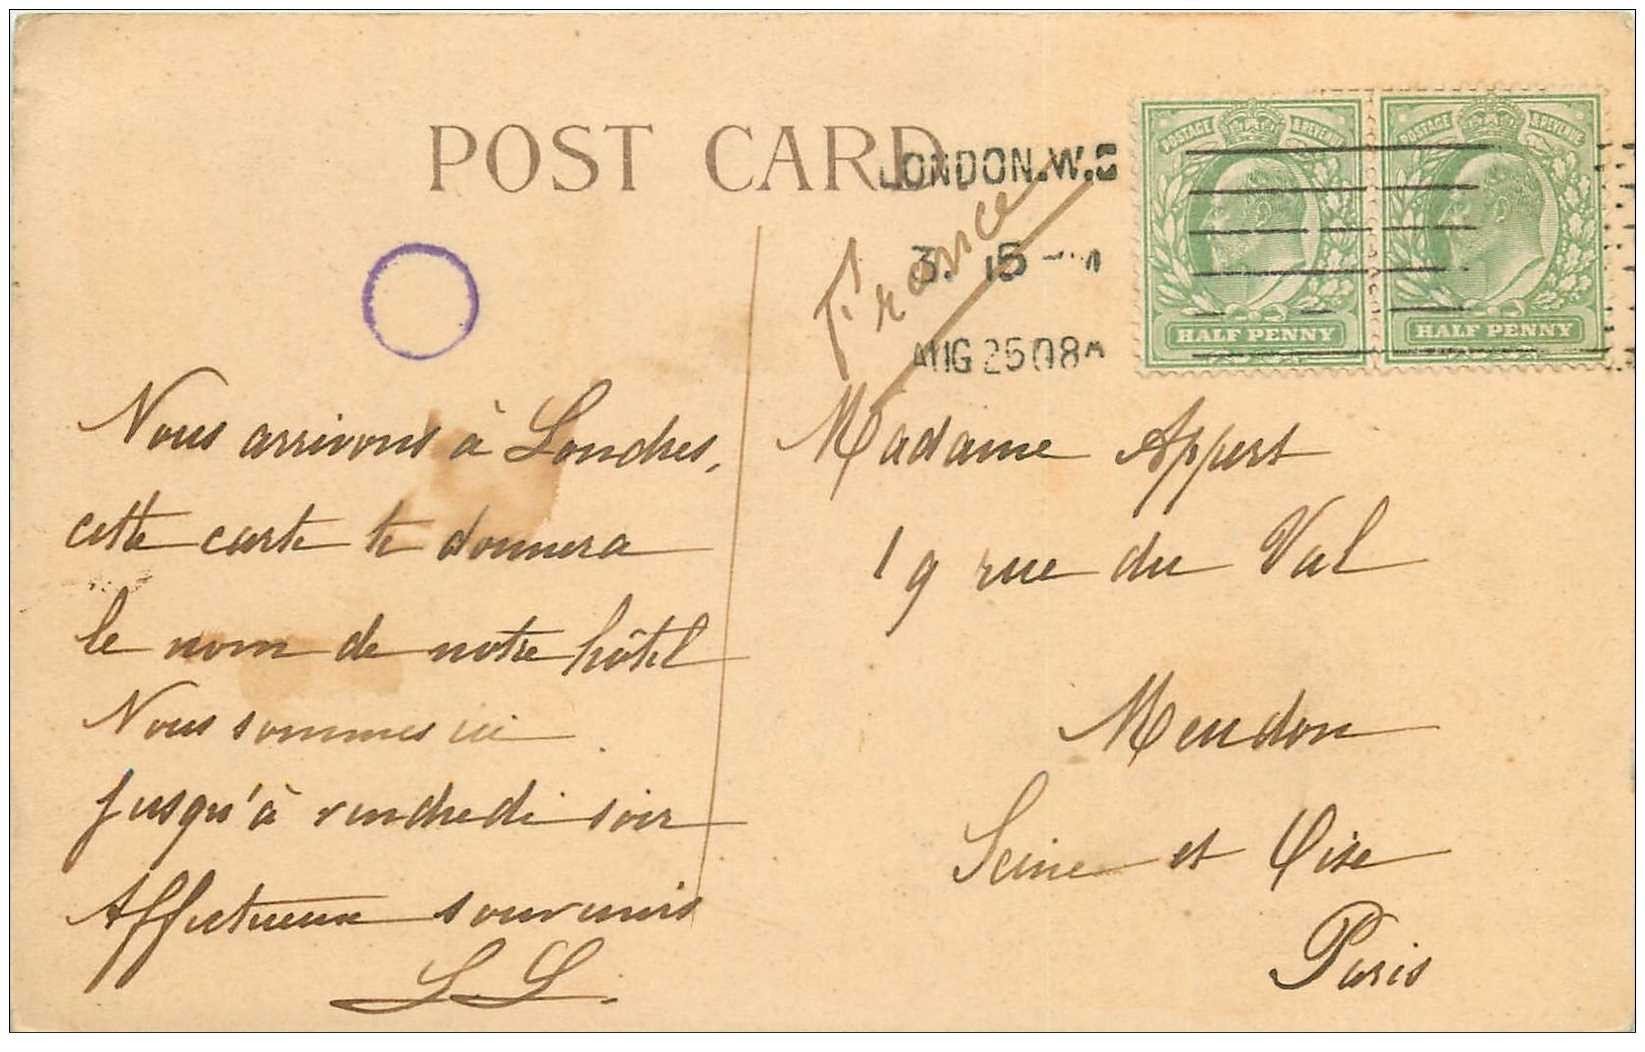 POST CARD
LONDON.W.C
3. 15
AUG 25 08
POSTAGE & REVENUE
HALF PENNY
POSTAGE & REVENUE
HALF PENNY
France
Nous arrivons à Londres,
cette carte te donnera
le nom de notre hôtel
Nous sommes ici
jusqu'à vendredi soir
Affectueux souvenirs
Madame Appert
19 rue du Val
Meudon
Seine et Oise
Paris